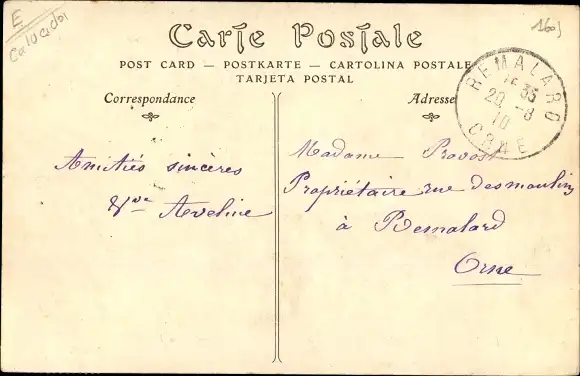 E
Calvados
1601
Carte Postale
POST CARD — POSTKARTE — CARTOLINA POSTALE
TARJETA POSTAL
Correspondance
Adresse
REMALARD
35
20 -8
10
ORNE
Amitiés sincères
Vve Aveline
Madame Provost
Propriétaire rue desmoulins
à Remalard
Orne